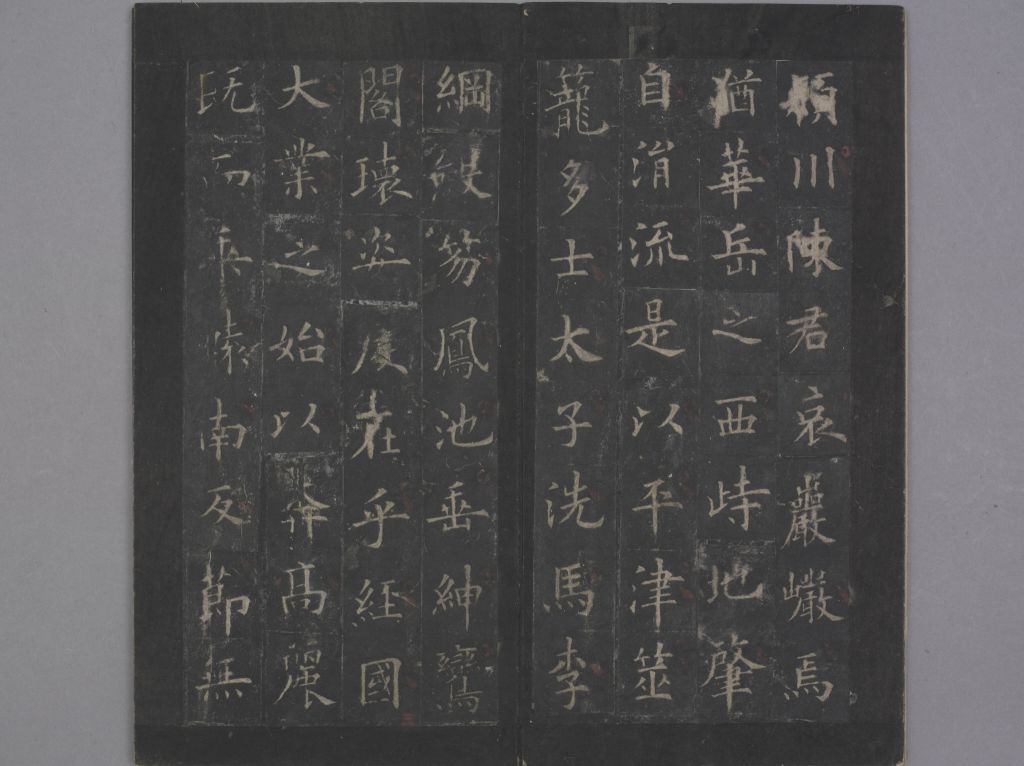 川陳君哀巖巗焉
猶華岳之西峙地肇
自涓流是以平津筮
籠多士太子洗馬李
綱綴笏鳳池垂紳鸞
閣瓌姿度在乎經國
大業之始以弁高麗
既而南反節無